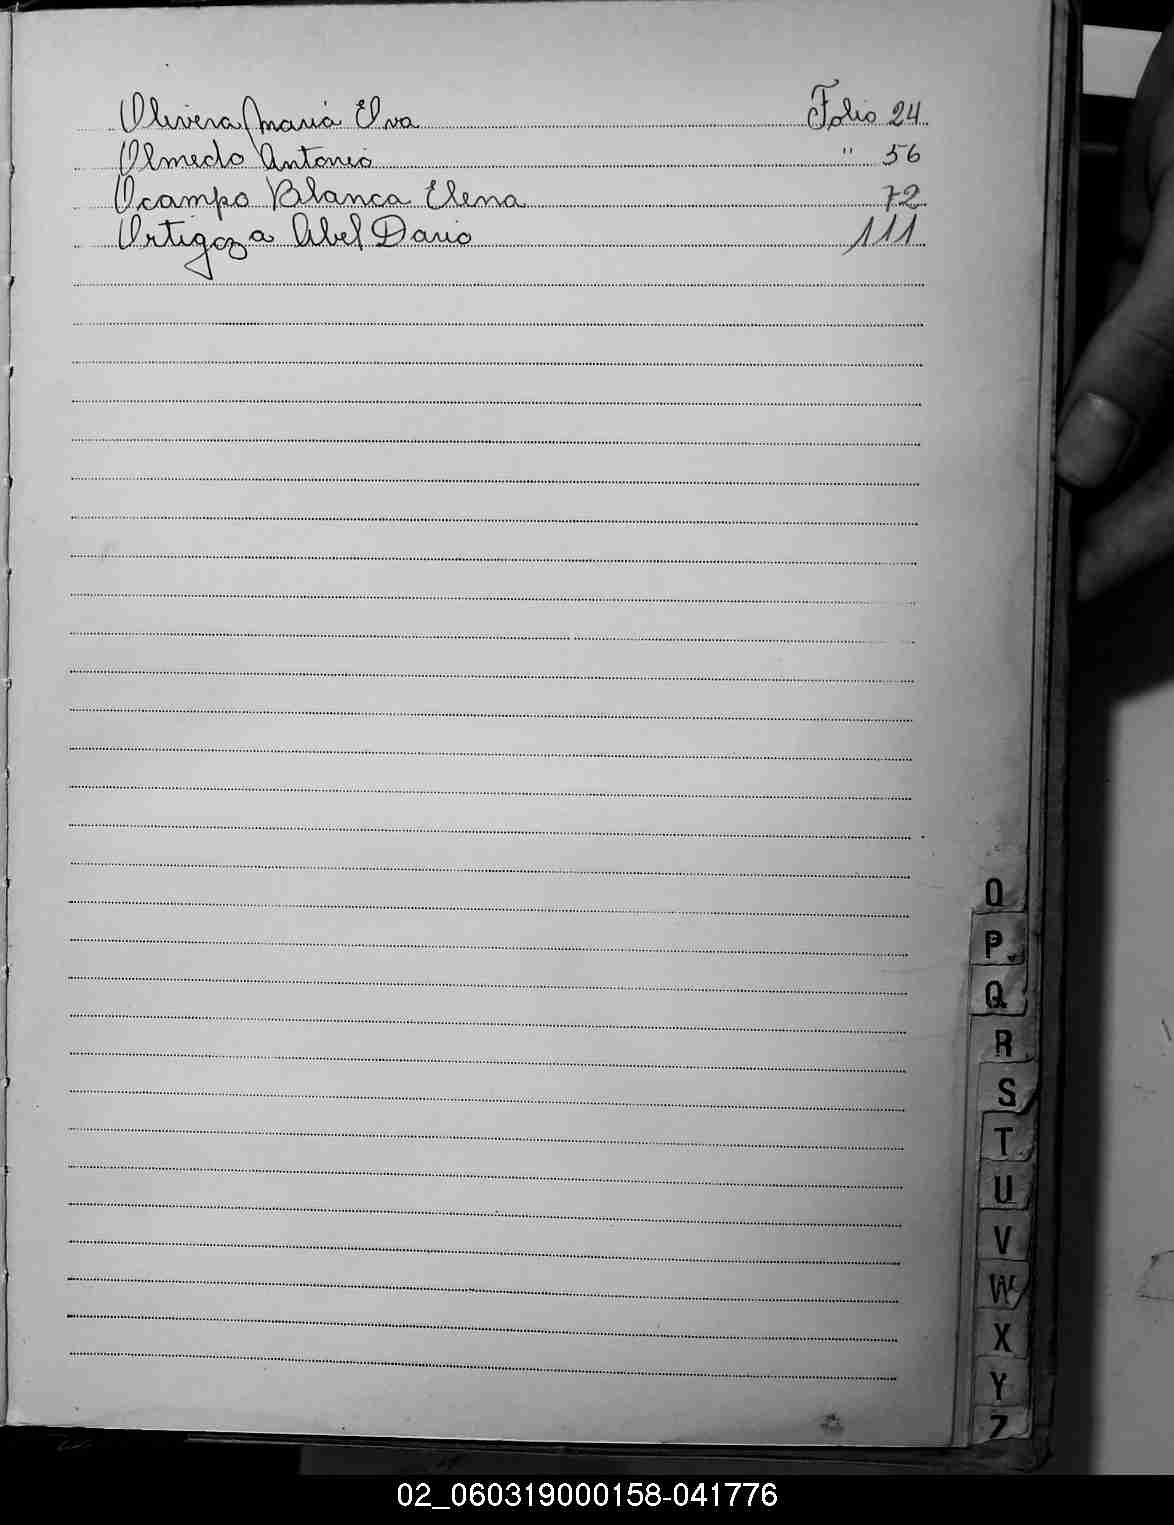 Olivera María Elva Folio 24
Olmedo Antonio " 56
Ocampo Blanca Elena 72
Ortigoza Abel Dario 111
O
P
Q
R
S
T
U
V
W
X
Y
Z
02_060319000158-041776